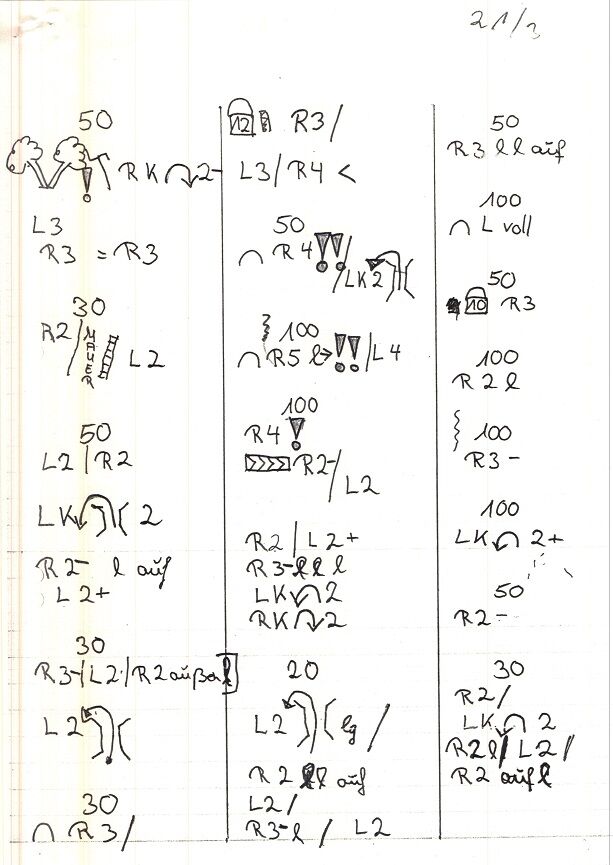 21/3
50
RK 2-
L3
R3 = R3
30
R2/ MAUER L2
50
L2 | R2
LK 2
R2- l auf
L2+
30
R3-/L2·/R2 außen
L2
30
R3/
12 R3/
L3/R4 <
50
R4!!/LK2
100
R5 l→!!/L4
100
R4!
>>>> R2-/L2
R2/L2+
R3-l l l
LK 2
RK 2
20
L2 lg /
R2 ll auf
L2/
R3-l / L2
50
R3 l l auf
100
L voll
50
10 R3
100
R2 l
100
R3-
100
LK 2+
50
R2-
30
R2/
LK 2
R2l/L2/
R2 auf l